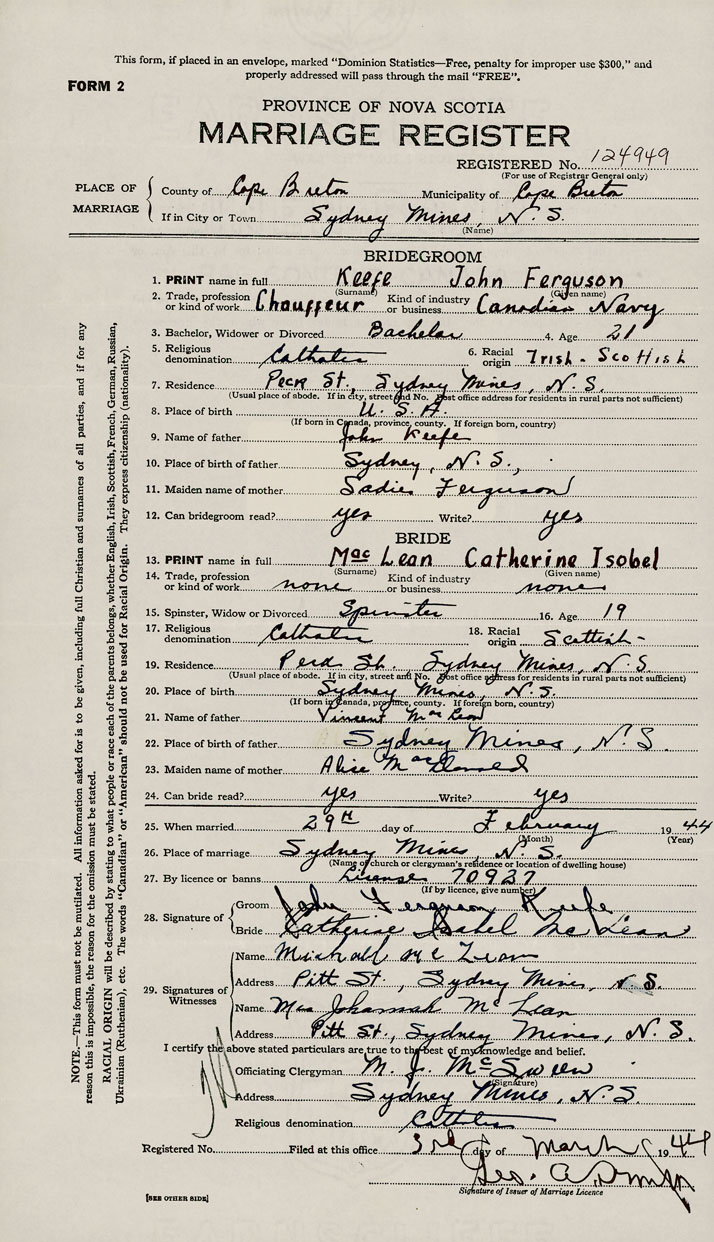 This form, if placed in an envelope, marked "Dominion Statistics—Free, penalty for improper use $300," and
properly addressed will pass through the mail "FREE".
FORM 2
PROVINCE OF NOVA SCOTIA
MARRIAGE REGISTER
REGISTERED No. 124949
(For use of Registrar General only)
PLACE OF MARRIAGE
County of Cape Breton Municipality of Cape Breton
If in City or Town Sydney Mines, N.S.
(Name)
BRIDEGROOM
1. PRINT name in full Keefe John Ferguson
(Surname) (Given name)
2. Trade, profession or kind of work Chauffeur Kind of industry or business Canadian Navy
3. Bachelor, Widower or Divorced Bachelor 4. Age 21
5. Religious denomination Catholic 6. Racial origin Irish - Scottish
7. Residence Peck St., Sydney Mines, N.S.
(Usual place of abode. If in city, street and No. Post office address for residents in rural parts not sufficient)
8. Place of birth U.S.A.
(If born in Canada, province, county. If foreign born, country)
9. Name of father John Keefe
10. Place of birth of father Sydney, N.S.,
11. Maiden name of mother Sadie Ferguson
12. Can bridegroom read? yes Write? yes
BRIDE
13. PRINT name in full MacLean Catherine Isobel
(Surname) (Given name)
14. Trade, profession or kind of work none Kind of industry or business none
15. Spinster, Widow or Divorced Spinster 16. Age 19
17. Religious denomination Catholic 18. Racial origin Scottish -
19. Residence St. Sydney Mines, N.S.
(Usual place of abode. If in city, street and No. Post office address for residents in rural parts not sufficient)
20. Place of birth Sydney Mines, N.S.
(If born in Canada, province, county. If foreign born, country)
21. Name of father Vincent MacLean
22. Place of birth of father Sydney Mines, N.S.
23. Maiden name of mother Alice MacDonald
24. Can bride read? yes Write? yes
25. When married 29th day of February 1944
(Month) (Year)
26. Place of marriage Sydney Mines, N.S.
(Name of church or clergyman's residence or location of dwelling house)
27. By licence or banns License 70927
(If by licence, give number)
28. Signature of
Groom John Ferguson Keefe
Bride Catherine Isabel MacLean
29. Signatures of Witnesses
Name Michael McLean
Address Pitt St., Sydney Mines, N.S.
Name Mrs Johannah McLean
Address Pitt St., Sydney Mines, N.S.
I certify the above stated particulars are true to the best of my knowledge and belief.
Officiating Clergyman M. J.
(Signature)
Address Sydney Mines, N.S.
Religious denomination Catholic
Registered No. Filed at this office 3rd day of March 1944
Geo. A.
Signature of Issuer of Marriage Licence
[SEE OTHER SIDE]
NOTE.—This form must not be mutilated. All information asked for is to be given, including full Christian and surnames of all parties, and if for any
reason this is impossible, the reason for the omission must be stated.
RACIAL ORIGIN will be described by stating to what people or race each of the parents belongs, whether English, Irish, Scottish, French, German, Russian,
Ukrainian (Ruthenian), etc. The words "Canadian" or "American" should not be used for Racial Origin. They express citizenship (nationality).